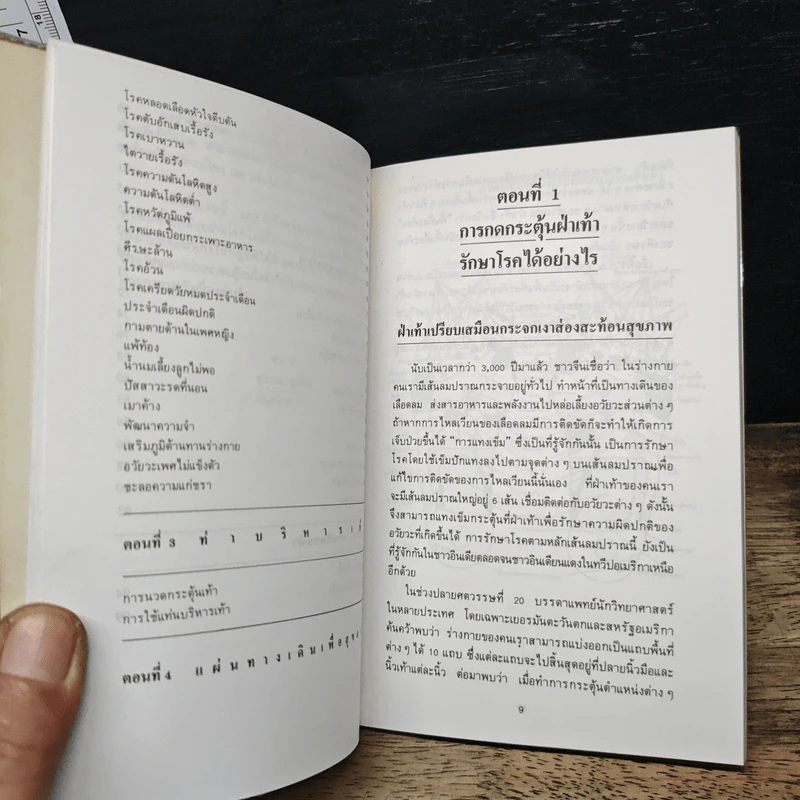 โรคหลอดเลือดหัวใจตีบตัน
โรคตับอักเสบเรื้อรัง
โรคเบาหวาน
ไตวายเรื้อรัง
โรคความดันโลหิตสูง
ความดันโลหิตต่ำ
โรคหวัดภูมิแพ้
โรคแผลเปื่อยกระเพาะอาหาร
ศีรษะล้าน
โรคอ้วน
โรคเครียดวัยหมดประจำเดือน
ประจำเดือนผิดปกติ
กามตายด้านในเพศหญิง
แพ้ท้อง
น้ำนมเลี้ยงลูกไม่พอ
ปัสสาวะรดที่นอน
เมาค้าง
พัฒนาความจำ
เสริมภูมิต้านทานร่างกาย
อวัยวะเพศไม่แข็งตัว
ชะลอความแก่ชรา
ตอนที่ 3 ท่าบริหารเท้
การนวดกระตุ้นเท้า
การใช้แท่นบริหารเท้า
ตอนที่ 4 แผ่นทางเดินเพื่อสุข
ตอนที่ 1
การกดกระตุ้นฝ่าเท้า
รักษาโรคได้อย่างไร
ฝ่าเท้าเปรียบเสมือนกระจกเงาส่องสะท้อนสุขภาพ
นับเป็นเวลากว่า 3,000 ปีมาแล้ว ชาวจีนเชื่อว่า ในร่างกาย
คนเรามีเส้นลมปราณกระจายอยู่ทั่วไป ทำหน้าที่เป็นทางเดินของ
เลือดลม ส่งสารอาหารและพลังงานไปหล่อเลี้ยงอวัยวะส่วนต่าง ๆ
ถ้าหากการไหลเวียนของเลือดลมมีการติดขัดก็จะทำให้เกิดการ
เจ็บป่วยขึ้นได้ "การแทงเข็ม" ซึ่งเป็นที่รู้จักกันนั้น เป็นการรักษา
โรคโดยใช้เข็มปักแทงลงไปตามจุดต่าง ๆ บนเส้นลมปราณเพื่อ
แก้ไขการติดขัดของการไหลเวียนนี้นั่นเอง ที่ฝ่าเท้าของคนเรา
จะมีเส้นลมปราณใหญ่อยู่ 6 เส้น เชื่อมติดต่อกับอวัยวะต่าง ๆ ดังนั้น
จึงสามารถแทงเข็มกระตุ้นที่ฝ่าเท้าเพื่อรักษาความผิดปกติของ
อวัยวะที่เกิดขึ้นได้ การรักษาโรคตามหลักเส้นลมปราณนี้ ยังเป็น
ที่รู้จักกันในชาวอินเดียตลอดจนชาวอินเดียนแดงในทวีปอเมริกาเหนือ
อีกด้วย
ในช่วงปลายศตวรรษที่ 20 บรรดาแพทย์นักวิทยาศาสตร์
ในหลายประเทศ โดยเฉพาะเยอรมันตะวันตกและสหรัฐอเมริกา
ค้นคว้าพบว่า ร่างกายของคนเราสามารถแบ่งออกเป็นแถบพื้นที่
ต่าง ๆ ได้ 10 แถบ ซึ่งแต่ละแถบจะไปสิ้นสุดอยู่ที่ปลายนิ้วมือและ
นิ้วเท้าแต่ละนิ้ว ต่อมาพบว่า เมื่อทำการกระตุ้นตำแหน่งต่าง ๆ
9